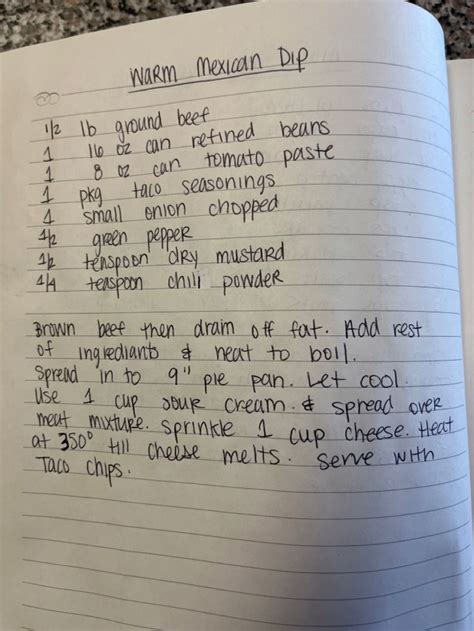 Warm Mexican Dip
1/2 lb ground beef
1 16 oz can refined beans
1 8 oz can tomato paste
1 pkg taco seasonings
1 small onion chopped
1/2 green pepper
1/2 teaspoon dry mustard
1/4 teaspoon chili powder
Brown beef then drain off fat. Add rest
of ingrediants & heat to boil.
Spread in to 9" pie pan. Let cool.
Use 1 cup sour cream & spread over
meat mixture. Sprinkle 1 cup cheese. Heat
at 350° till cheese melts. Serve with
Taco chips.